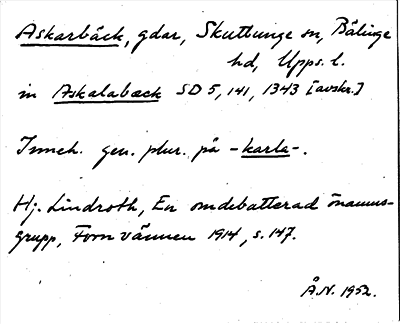 Askarbäck, gdar, Skuttunge sn, Bälinge
hd, Upps. l.
in Askalabæck SD 5, 141, 1343 [avskr.]
Inneh. gen. plur. på -karla-.
Hj. Lindroth, En omdebatterad önamns-
grupp, Fornvännen 1914, s. 147.
Å.N. 1952.